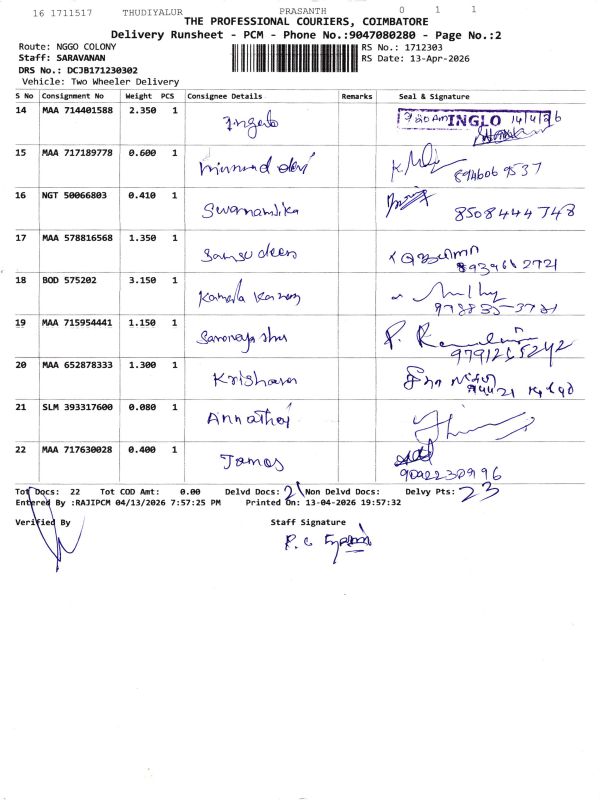 16 1711517 THUDIYALUR PRASANTH 0 1 1
THE PROFESSIONAL COURIERS, COIMBATORE
Delivery Runsheet - PCM - Phone No.:9047080280 - Page No.:2
Route: NGGO COLONY RS No.: 1712303
Staff: SARAVANAN RS Date: 13-Apr-2026
DRS No.: DCJB171230302
Vehicle: Two Wheeler Delivery
S No Consignment No Weight PCS Consignee Details Remarks Seal & Signature
14 MAA 714401588 2.350 1 INGLO 14/4/26
15 MAA 717189778 0.600 1
16 NGT 50066803 0.410 1 Swarnambika 8508444748
17 MAA 578816568 1.350 1
18 BOD 575202 3.150 1
19 MAA 715954441 1.150 1
20 MAA 652878333 1.300 1 Krishavan
21 SLM 393317600 0.080 1 Annathai
22 MAA 717630028 0.400 1 James 9092230996
Tot Docs: 22 Tot COD Amt: 0.00 Delvd Docs: 21 Non Delvd Docs: Delvy Pts: 23
Entered By :RAJIPCM 04/13/2026 7:57:25 PM Printed On: 13-04-2026 19:57:32
Verified By Staff Signature